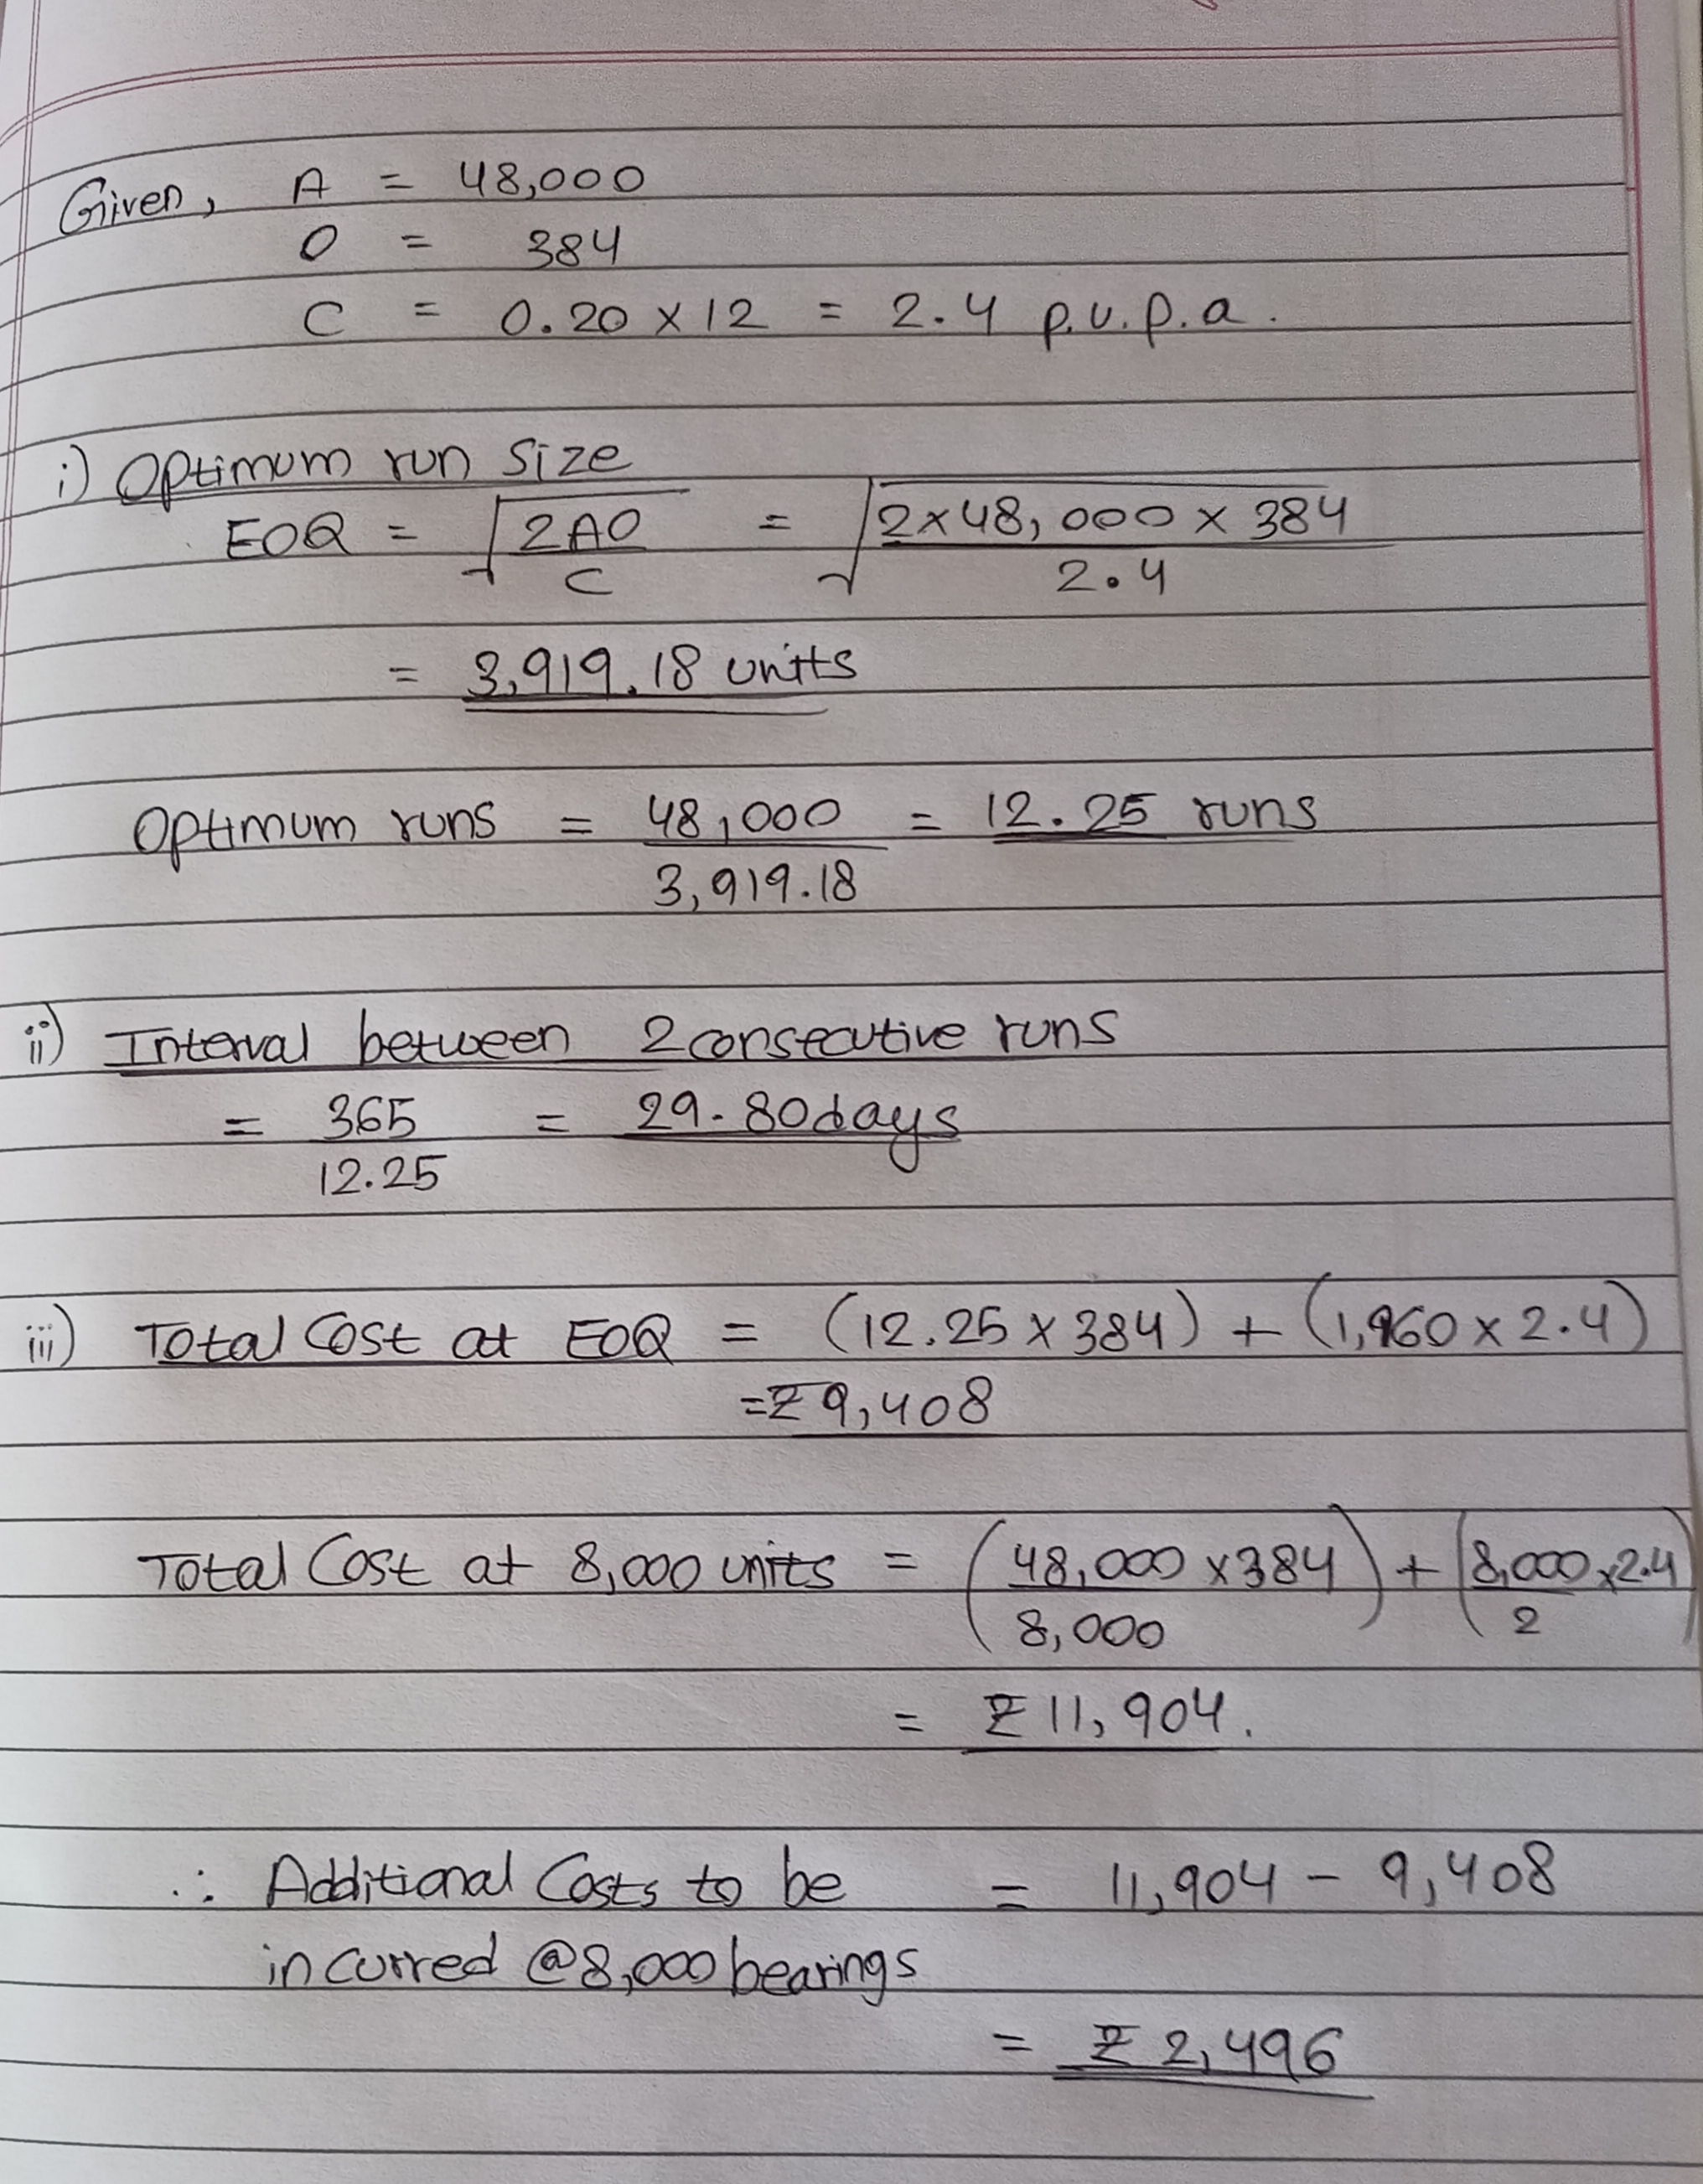 Given, A = 48,000
O = 384
C = 0.20 × 12 = 2.4 p.u.p.a.
i) Optimum run size
EOQ = √(2AO / C) = √(2×48,000 × 384 / 2.4)
= 3,919.18 units
Optimum runs = 48,000 / 3,919.18 = 12.25 runs
ii) Interval between 2 consecutive runs
= 365 / 12.25 = 29.80 days
iii) Total Cost at EOQ = (12.25 × 384) + (1,960 × 2.4)
= ₹ 9,408
Total Cost at 8,000 units = (48,000 / 8,000 × 384) + (8,000 / 2 × 2.4)
= ₹ 11,904.
∴ Additional Costs to be = 11,904 - 9,408
incurred @ 8,000 bearings
= ₹ 2,496